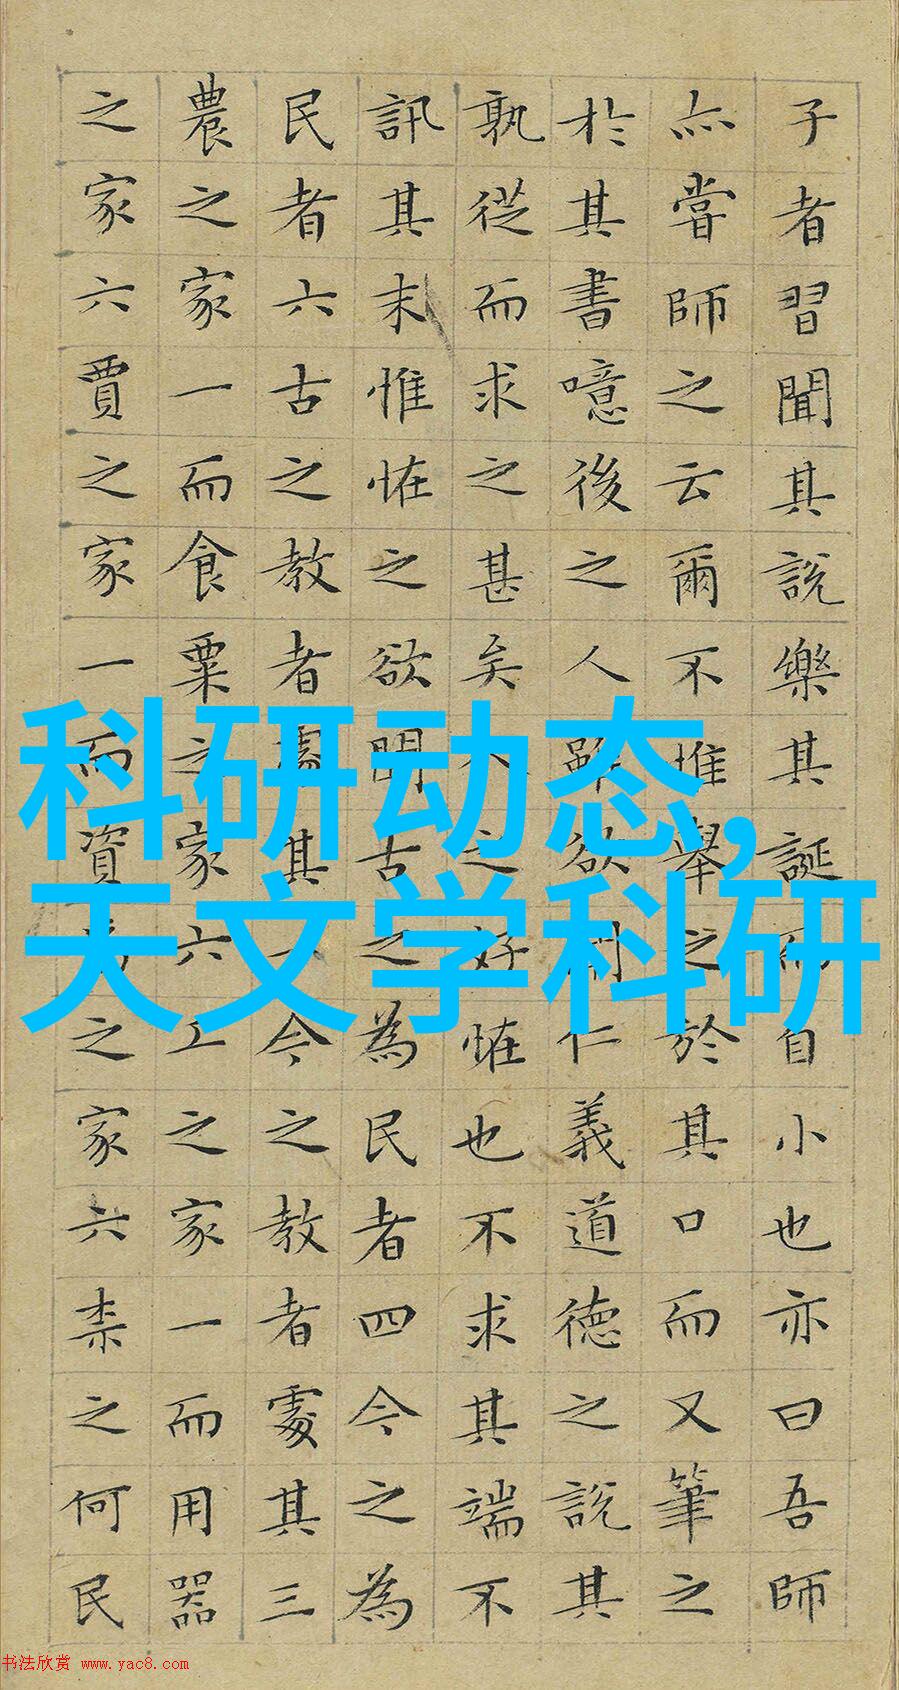 子者習聞其說樂其誕而自小也亦曰吾師
亦嘗師之云爾不惟舉之於其口而又筆之
於其書噫後之人雖欲聞仁義道德之說其
孰從而求之甚矣人之好恠也不求其端不
訊其末惟恠之欲聞古之為民者四今之為
民者六古之教者處其一今之教者處其三
農之家一而食粟之家六工之家一而用器
之家六賈之家一而資焉之家六柰之何民
科研动态,
天文学科研
书法欣赏 www.yac8.com